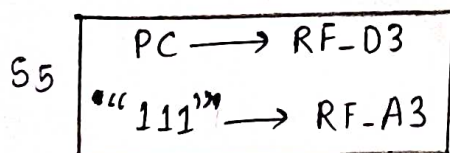 S5
PC → RF_D3
"111" → RF_A3